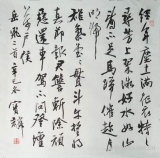 经年塵土满征衣特
特寻芳上翠微好水好山
看不足马蹄催趁月
明归
雄氣堂堂贯斗牛誓将
真节报君仇斩除顽
恶还車驾不问登壇
万户侯
岳飞二首